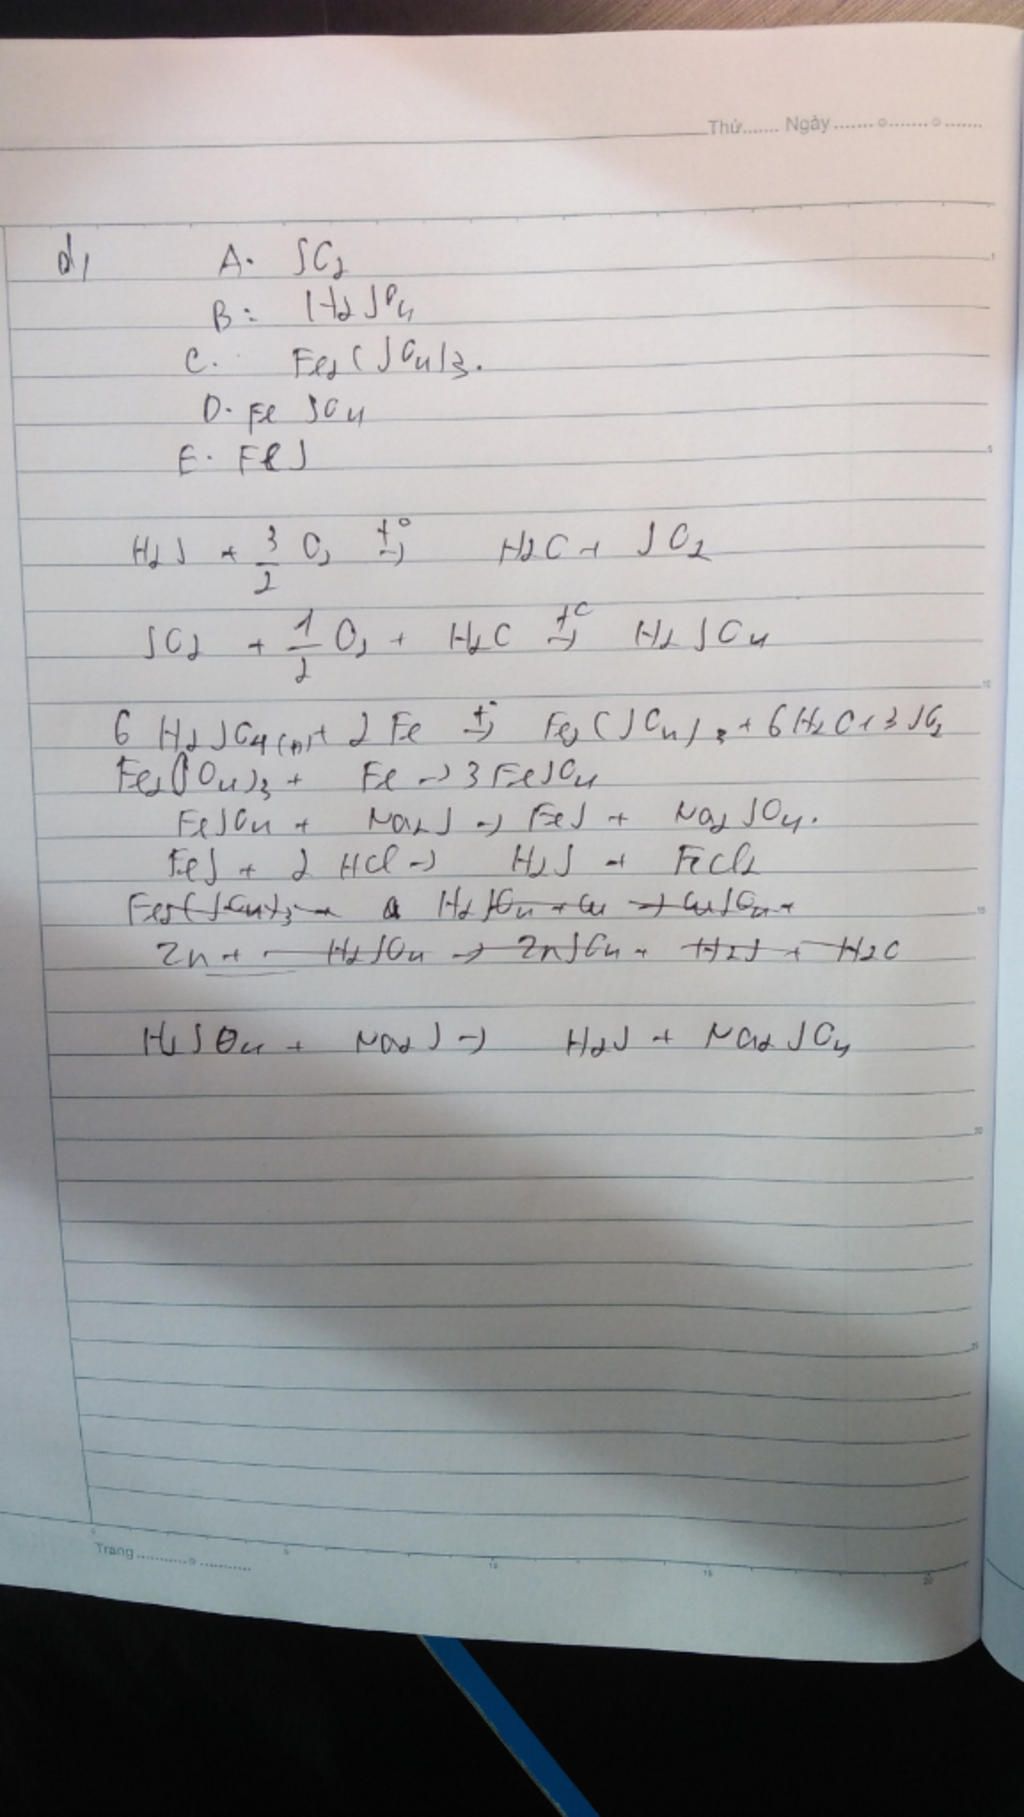 Thứ....... Ngày.......
d,
A. SO2
B: H2SO4
C. Fe2(SO4)3.
D. FeSO4
E. FeS
H2S + 3/2 O2 t°→ H2O + SO2
SO2 + 1/2 O2 + H2O t°→ H2SO4
6 H2SO4(đ) + 2 Fe t°→ Fe2(SO4)3 + 6H2O + 3SO2
Fe2(SO4)3 + Fe → 3FeSO4
FeSO4 + Na2S → FeS + Na2SO4.
FeS + 2HCl → H2S + FeCl2
Fe2(SO4)3 + H2SO4 + Cu → CuSO4 +
Zn + H2SO4 → ZnSO4 + H2S + H2O
H2SO4 + Na2S → H2S + Na2SO4
Trang